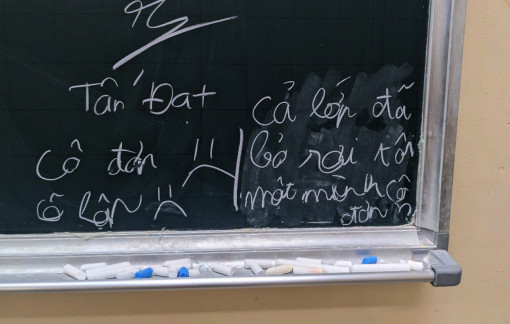 Tấn Đạt
Cô đơn
ô lộn
Cả lớp đã
bỏ rơi tôi
một mình cô
đơn